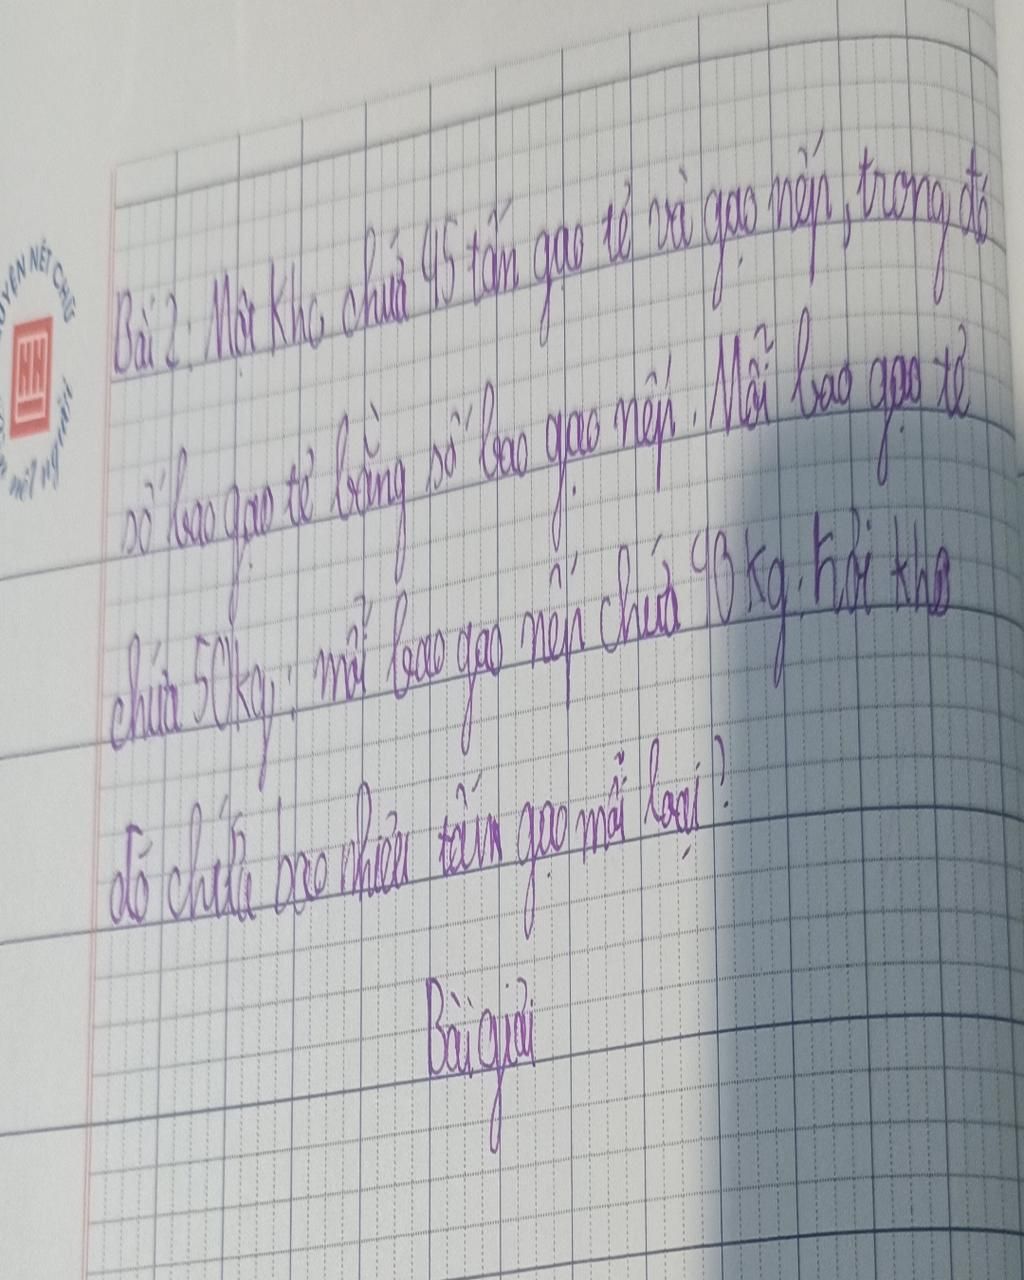 Bài 2: Một kho chứa 45 tấn gạo tẻ và gạo nếp, trong đó
số bao gạo tẻ bằng số bao gạo nếp. Mỗi bao gạo tẻ
chứa 50kg; mỗi bao gạo nếp chứa 40kg. hỏi kho
đó chứa bao nhiêu tấn gạo mỗi loại?
Bài giải
NÉT CHỮ
HN
nết người